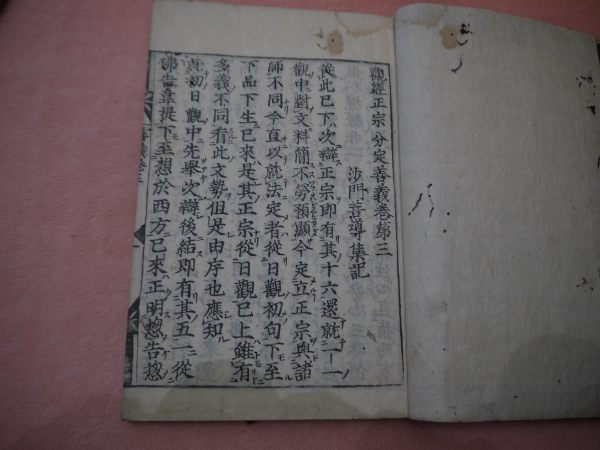 觀經正宗分定善義卷第三
沙門善導集記
從此已下次辯正宗即有其十六還就一一
觀中對文料簡不勞預顯今定立正宗與諸
師不同今直以就法定者從日觀初句下至
下品下生已來是其正宗從日觀已上雖有
多義不同看此文勢但是由序也應知
就初日觀中先舉次辯後結即有其五一從
佛告韋提下至想於西方已來正明揔告揔